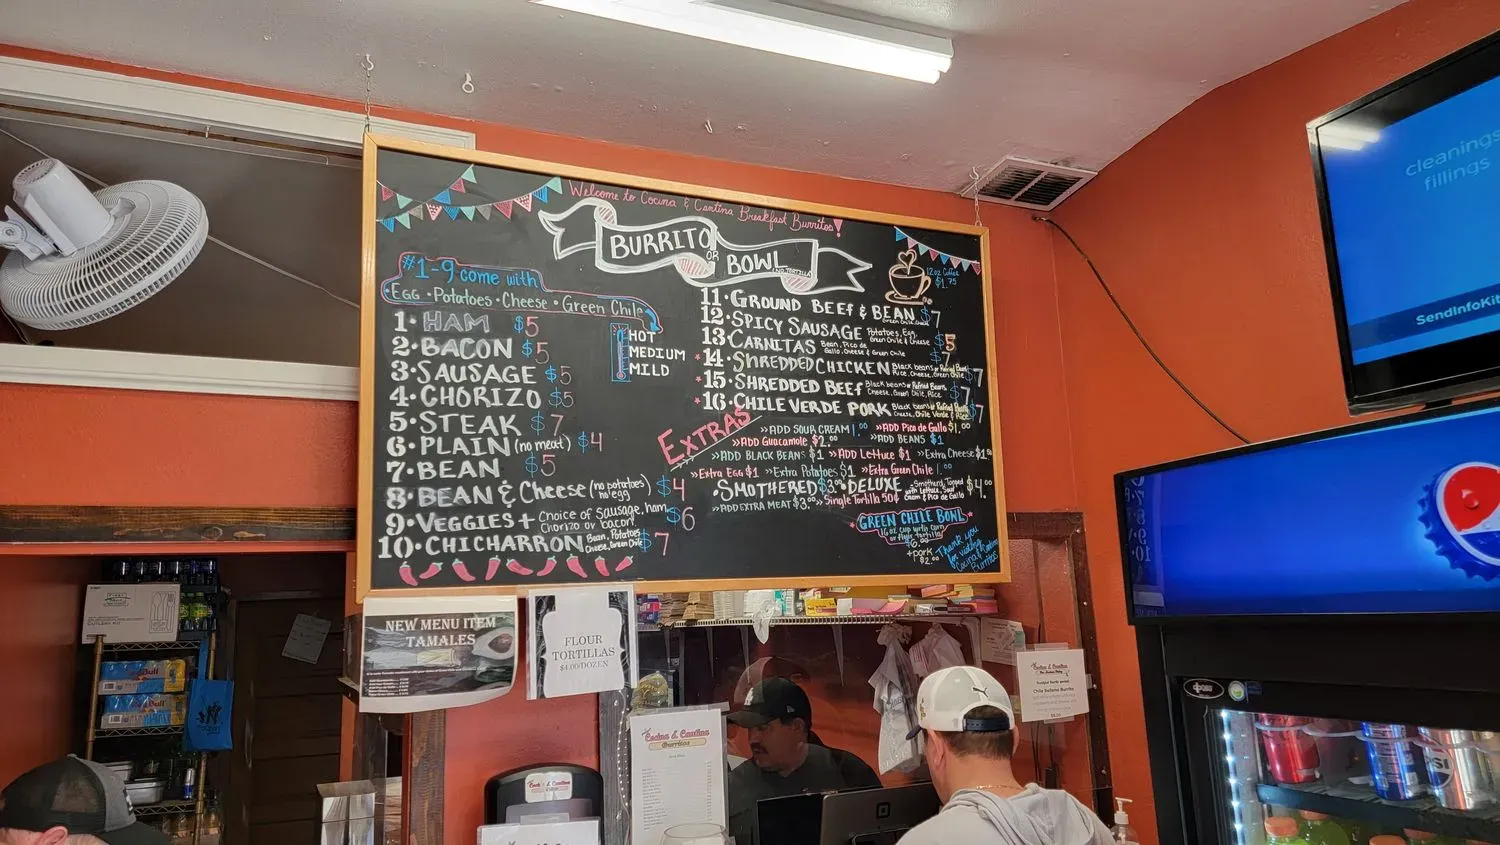 Welcome to Cocina & Cantina Breakfast Burritos!
BURRITO
OR
BOWL
NO TORTILLA
12 oz Coffee
$1.75
#1-9 come with
• Egg • Potatoes • Cheese • Green Chile
1 • HAM $5
2 • BACON $5
3 • SAUSAGE $5
4 • CHORIZO $5
5 • STEAK $7
6 • PLAIN (no meat) $4
7 • BEAN $5
8 • BEAN & Cheese (no potatoes) $4
no egg
9 • VEGGIES + Choice of Sausage, ham, $6
Chorizo or bacon
10 • CHICHARRON Bean, Potatoes $7
Cheese, Green Chile
HOT
MEDIUM
MILD
11 • GROUND BEEF & BEAN $7
Green Chile, Cheese
12 • SPICY SAUSAGE Potatoes, Egg, $5
Green Chile & Cheese
13 • CARNITAS Bean, Pico de $7
Gallo, Cheese & Green Chile
* 14 • SHREDDED CHICKEN Black beans or Refried Beans $7
Rice, Cheese, Green Chile
* 15 • SHREDDED BEEF Black beans or Refried Beans $7
Cheese, Green Chile, Rice
* 16 • CHILE VERDE PORK Black beans or Refried Beans $7
Cheese, Chile Verde & Rice
EXTRAS
>> ADD SOUR CREAM 1.00 >> ADD Pico de Gallo $1.00
>> ADD Guacamole $2.00 >> ADD BEANS $1
>> ADD BLACK BEANS $1 >> ADD Lettuce $1 >> Extra Cheese $1.00
>> Extra Egg $1 >> Extra Potatoes $1 >> Extra Green Chile 1.00
• SMOTHERED $3.00 • DELUXE - Smothered, Topped $4.00
with Lettuce, Sour
Cream & Pico de Gallo
>> ADD EXTRA MEAT $3.00 >> Single Tortilla 50¢
* GREEN CHILE BOWL *
16 oz. cup with corn
or flour tortilla
$6.00
+ pork
$2.00
Thank you
for visiting
Cocina & Cantina
Burritos
NEW MENU ITEM
TAMALES
FLOUR
TORTILLAS
$4.00/DOZEN
Cocina & Cantina
Burritos
Chile Relleno Burrito
cleanings
fillings
SendInfoKit
Bull
Bull